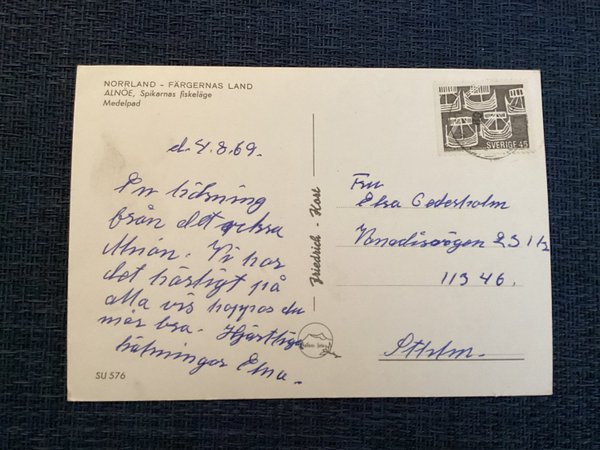 NORRLAND - FÄRGERNAS LAND
ALNÖE, Spikarnas fiskeläge
Medelpad
d. 4.8.69.
En hälsning
från det vackra
Alnön. Vi har
det härligt på
alla vis hoppas du
mår bra. Hjärtliga
hälsningar Elna.
SU 576
Friedrich - Kort
SVERIGE 45
Fru
Elsa Cederholm
Vanadisvägen
11346.
Sthlm.